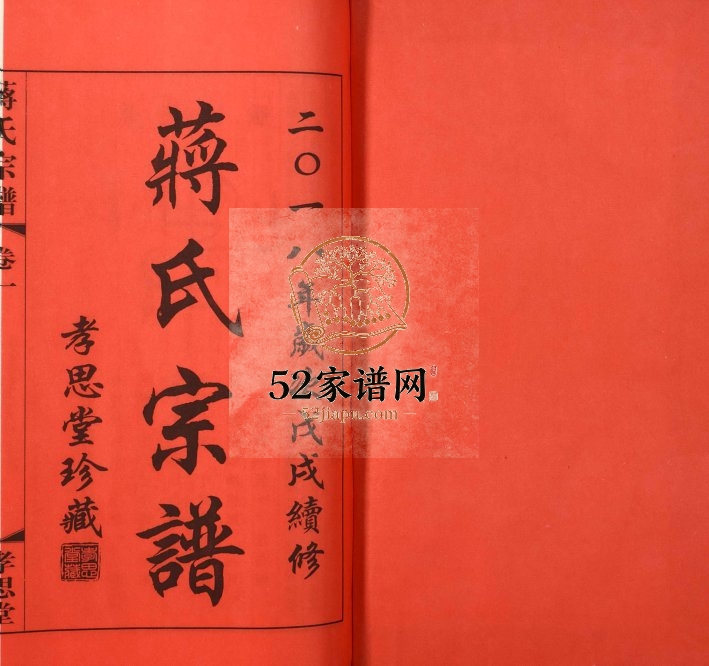 二〇一八年歲戊戌續修
蔣氏宗譜
孝思堂珍藏
蔣氏宗譜
卷一
孝思堂
52家谱网
52jiapu.com